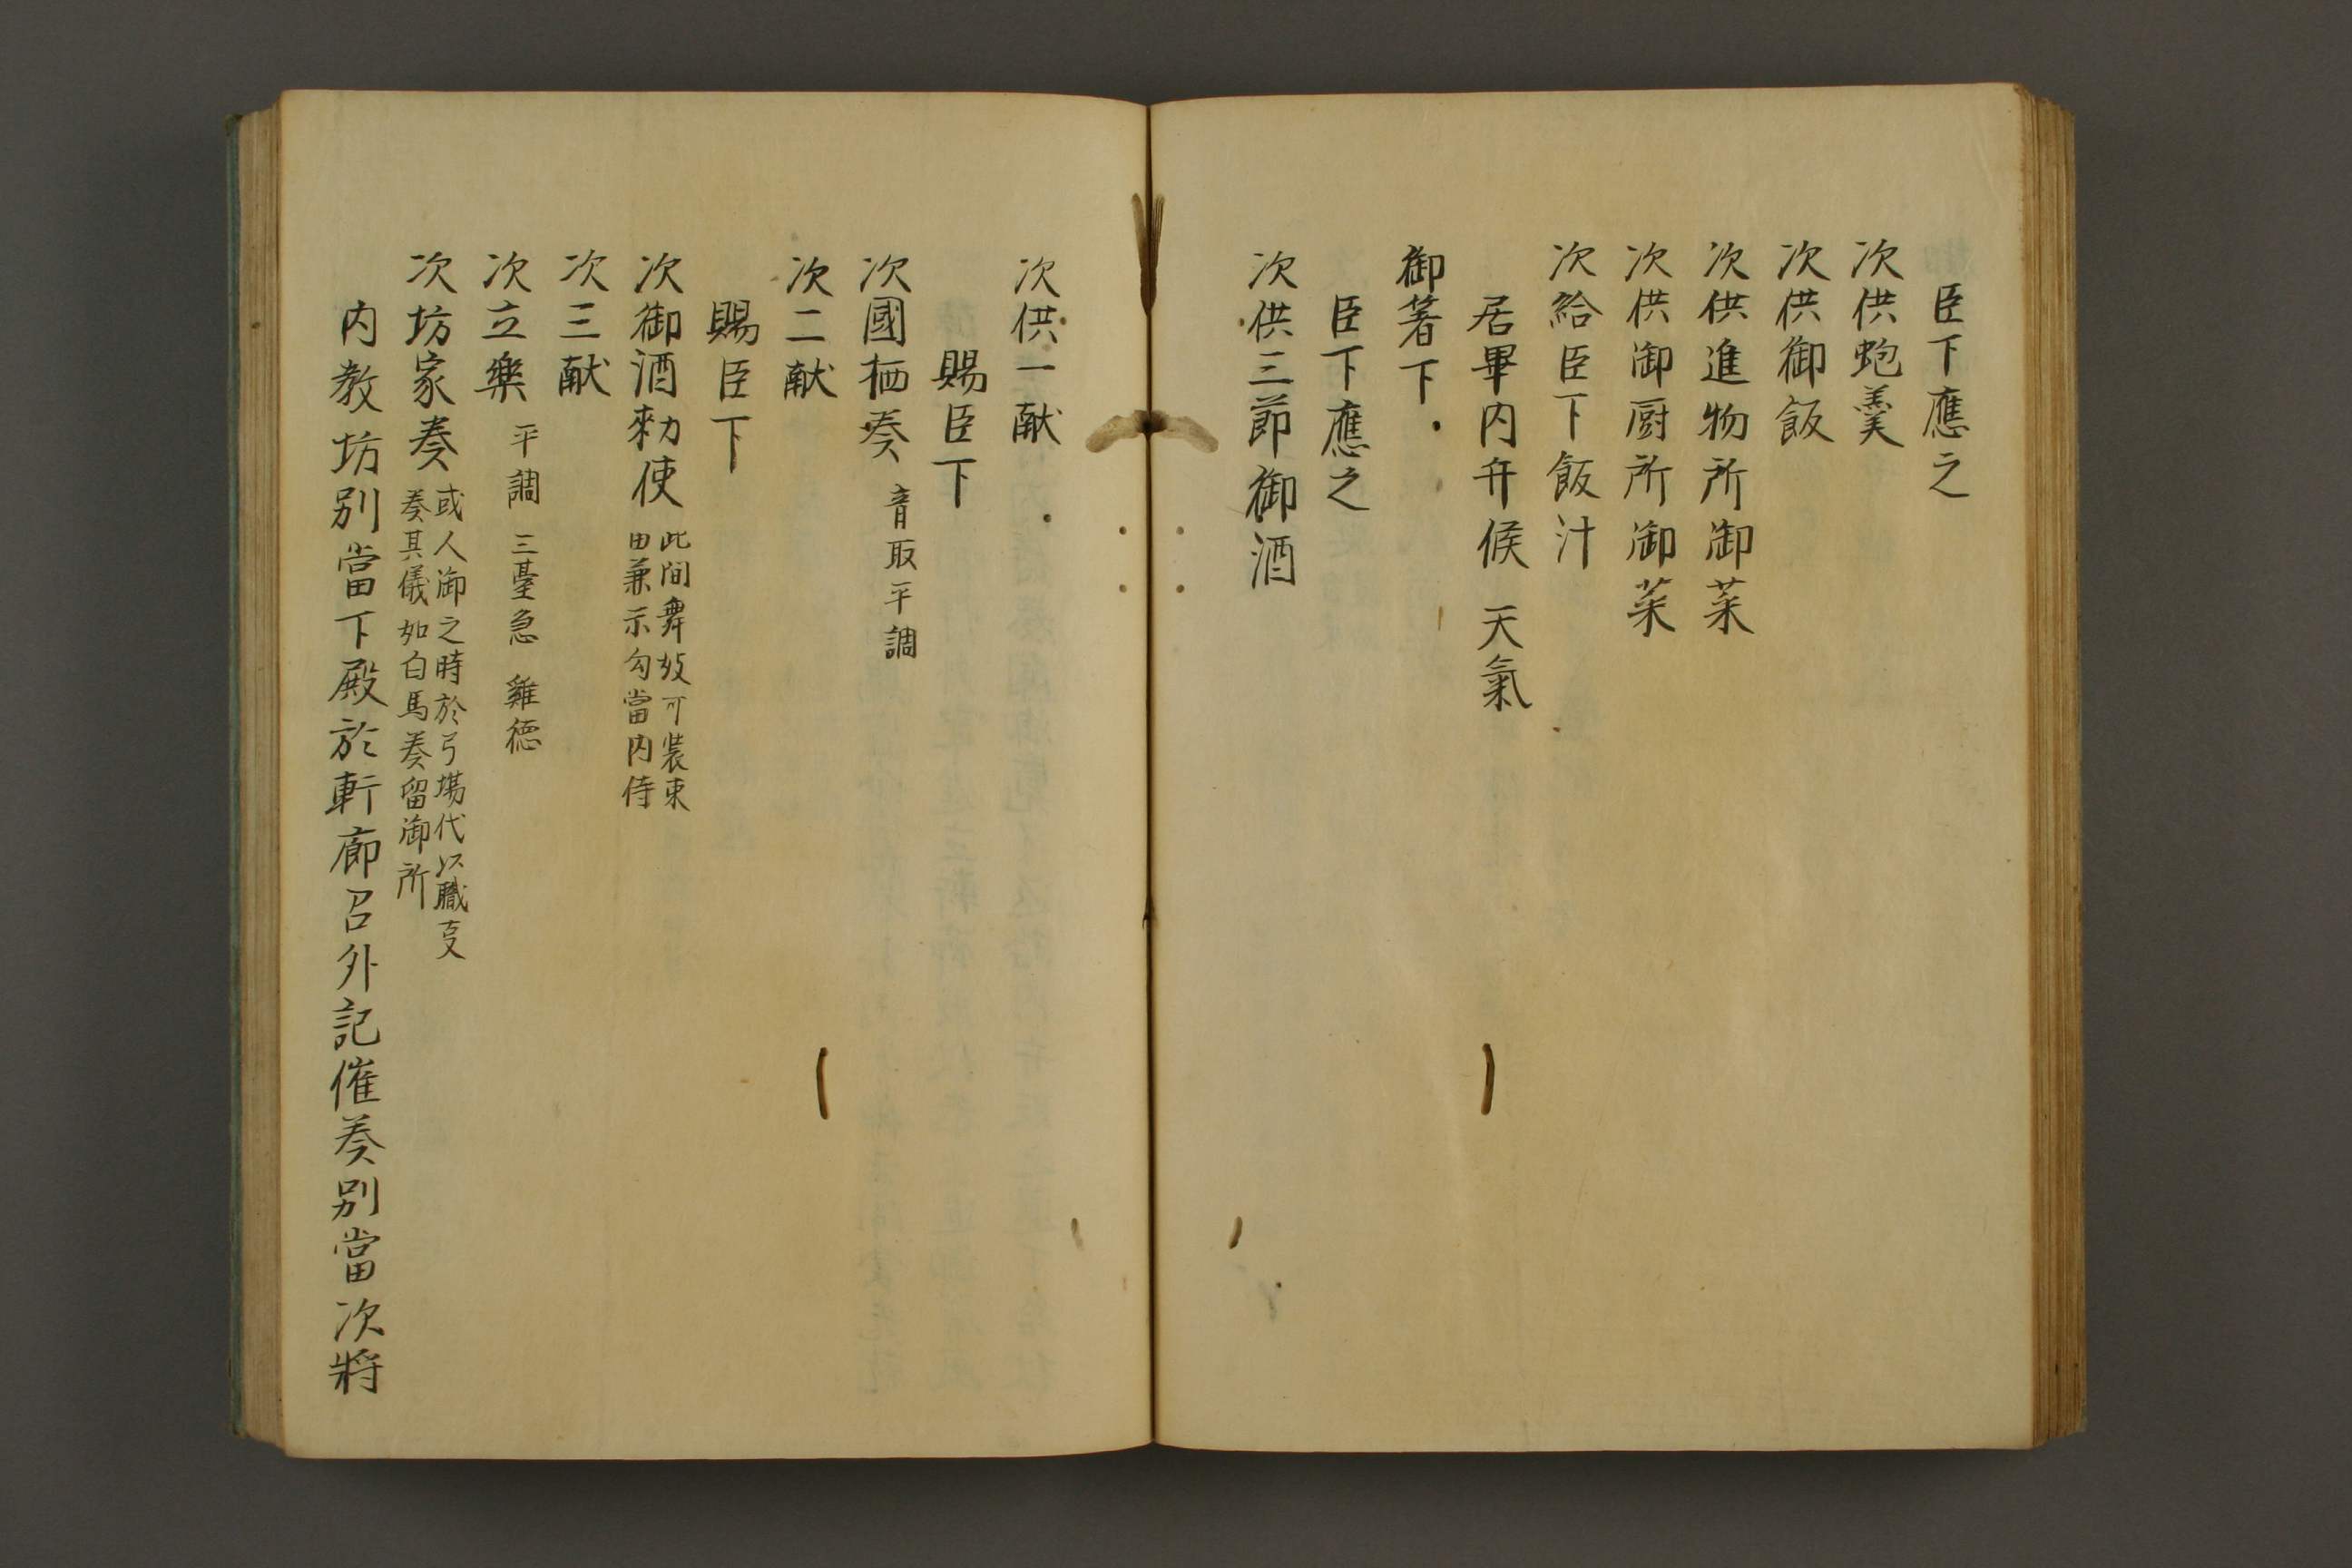 臣下應之
次供蚫羹
次供御飯
次供進物所御菜
次供御厨所御菜
次給臣下飯汁
居畢内弁候 天氣
御箸下
臣下應之
次供三節御酒
次供一献
賜臣下
次國栖奏 音取平調
次二献
賜臣下
次御酒勅使 此间舞妓可装束
由兼示勾當内侍
次三献
次立樂 平調 三臺急 雞徳
次坊家奏 或人御之時於弓場代以職事
奏其儀如白馬奏留御所
内教坊別當下殿於軒廊召外記催奏別當次将